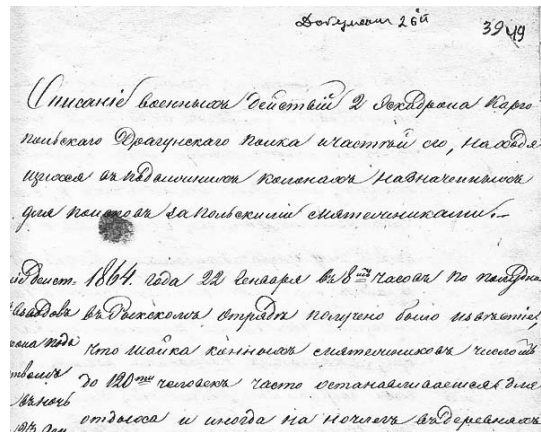 Документ 26й
39 49
Описаніе военныхъ действій 2 Эскадрона Карго
польскаго Драгунскаго полка и частей его, находя
щихся въ подвижныхъ колонахъ назначенныхъ
для поисковъ за польскими мятежниками.
1864. года 22 Генваря въ 8мъ часовъ по полудни
въ отрядѣ получено было извѣстіе,
что шайка конныхъ мятежниковъ числомъ
до 120ти человекъ часто останавливается для
отдыха и иногда на ночлегъ въ деревняхъ